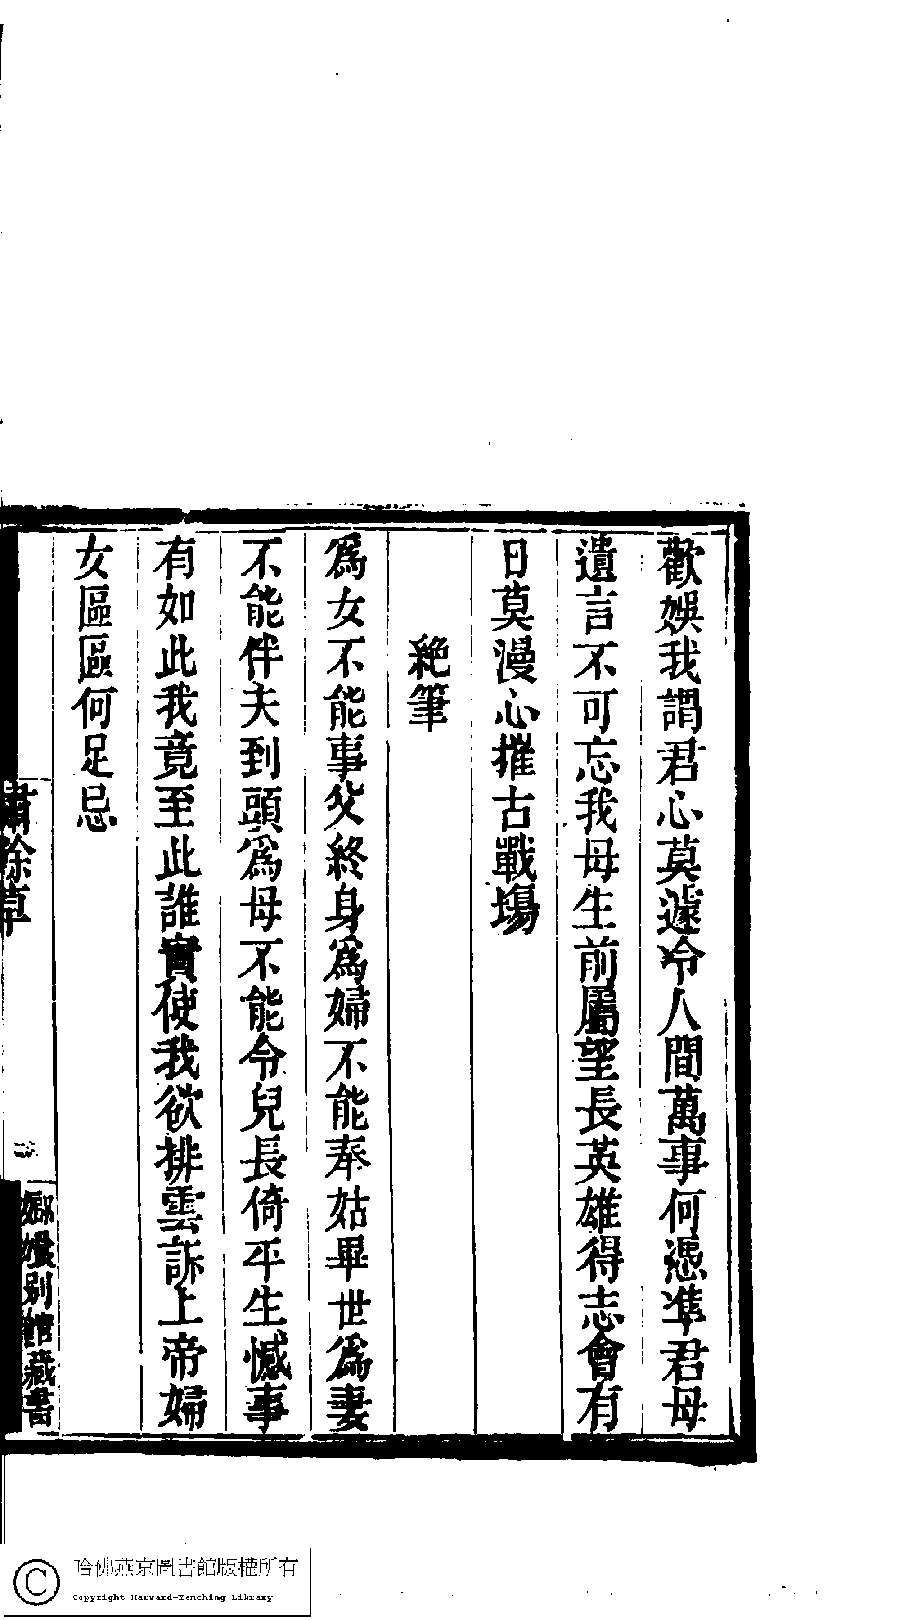 歡娛我謂君心莫遽冷人間萬事何憑準君母
遺言不可忘我母生前屬望長英雄得志會有
日莫漫心摧古戰場
絕筆
爲女不能事父終身爲婦不能奉姑畢世爲妻
不能伴夫到頭爲母不能令兒長倚平生憾事
有如此我竟至此誰實使我欲排雲訴上帝婦
女區區何足忌
餘草
嫏嬛別館藏書
哈佛燕京圖書館版權所有
Copyright Harvard-Yenching Library